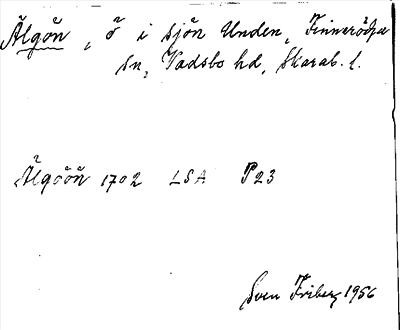 Älgön, ö i sjön Unden, Finnerödja
sn, Vadsbo hd, Skarab. l.
Älgöön 1702 LSA P23
Sven Friberg 1956